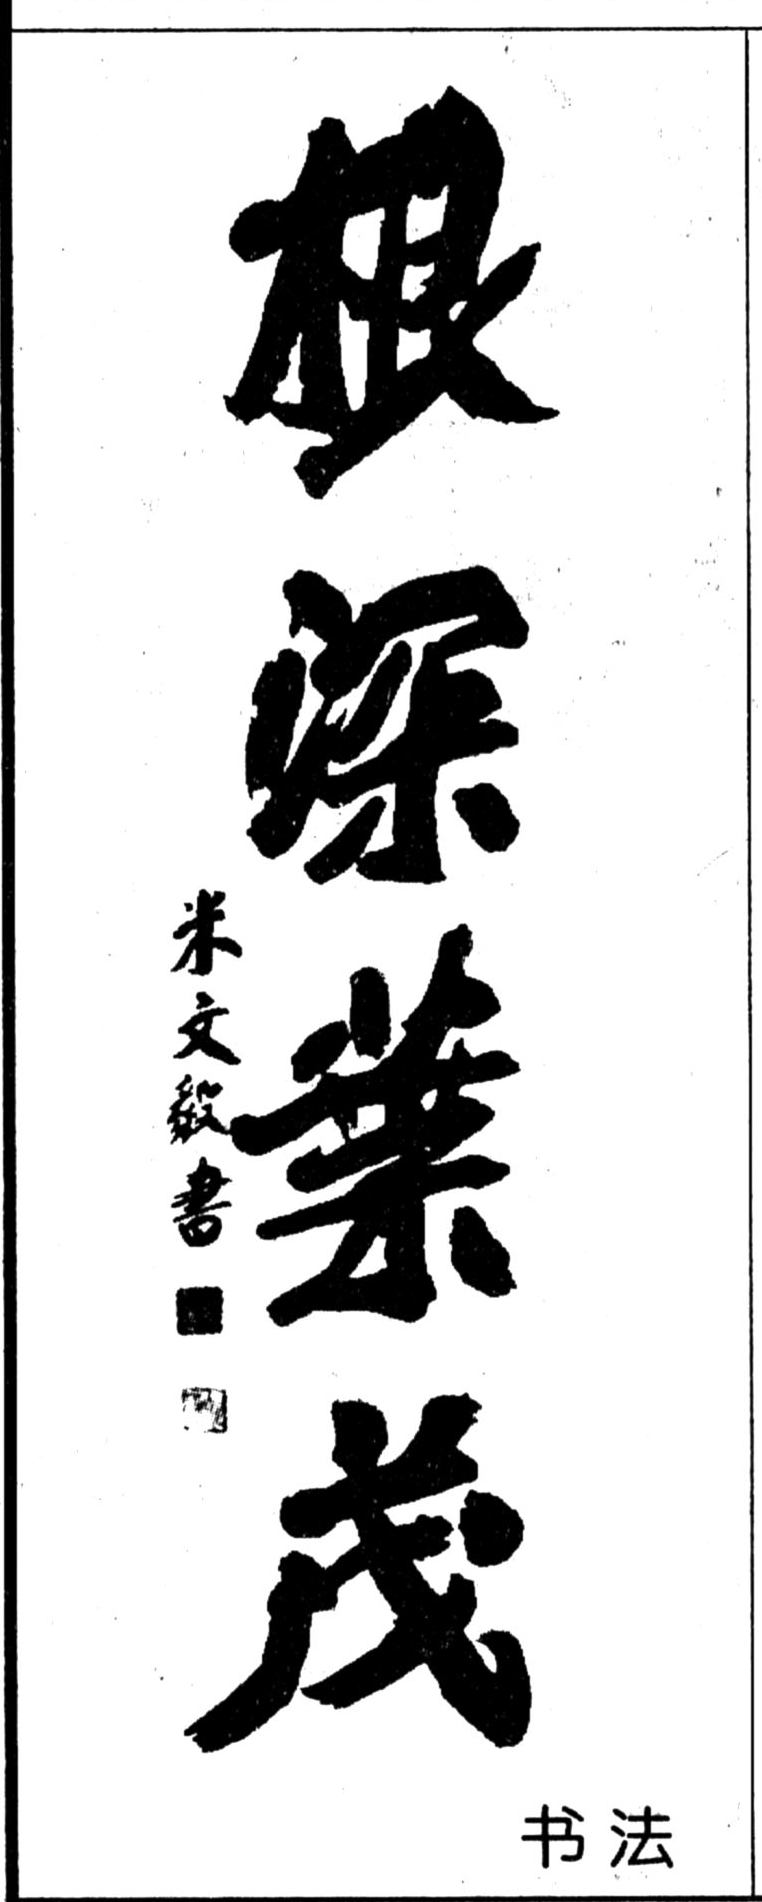 根深葉茂
米文毅書
书法